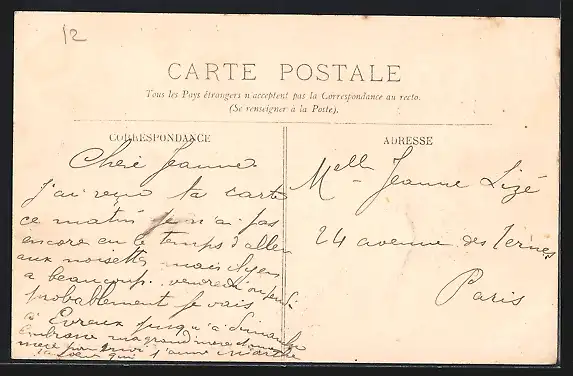 12
CARTE POSTALE
Tous les Pays étrangers n'acceptent pas la Correspondance au recto.
(Se renseigner à la Poste).
CORRESPONDANCE
Cheré Jeanne
j'ai reçu ta carte
ce matin je n'ai pas
encore eu le temps d'aller
aux noisettes mais il y en
a beaucoup. vendredi
probablement je vais
à Evreux jusqu'à dimanche
Embrasse ma grand mère et
mère pour moi
ta soeur qui t'aime Marthe
ADRESSE
Melle Jeanne Lizé
24 avenue des Ternes
Paris